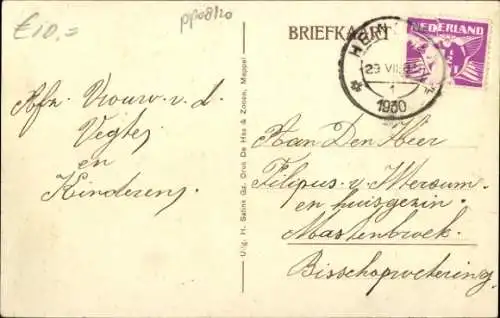 €10.=
pp08/20
BRIEFKAART
NEDERLAND
29 VII
1
1930
Afz. Vrouw. v. d.
Vegte
en
Kinderen
Uitg. H. Salins Gz. Druk De Has & Zonen, Meppel
Aan Den Heer
Filipus. v. Mersum
en huisgezin.
Mastenbroek.
Bisschopwetering